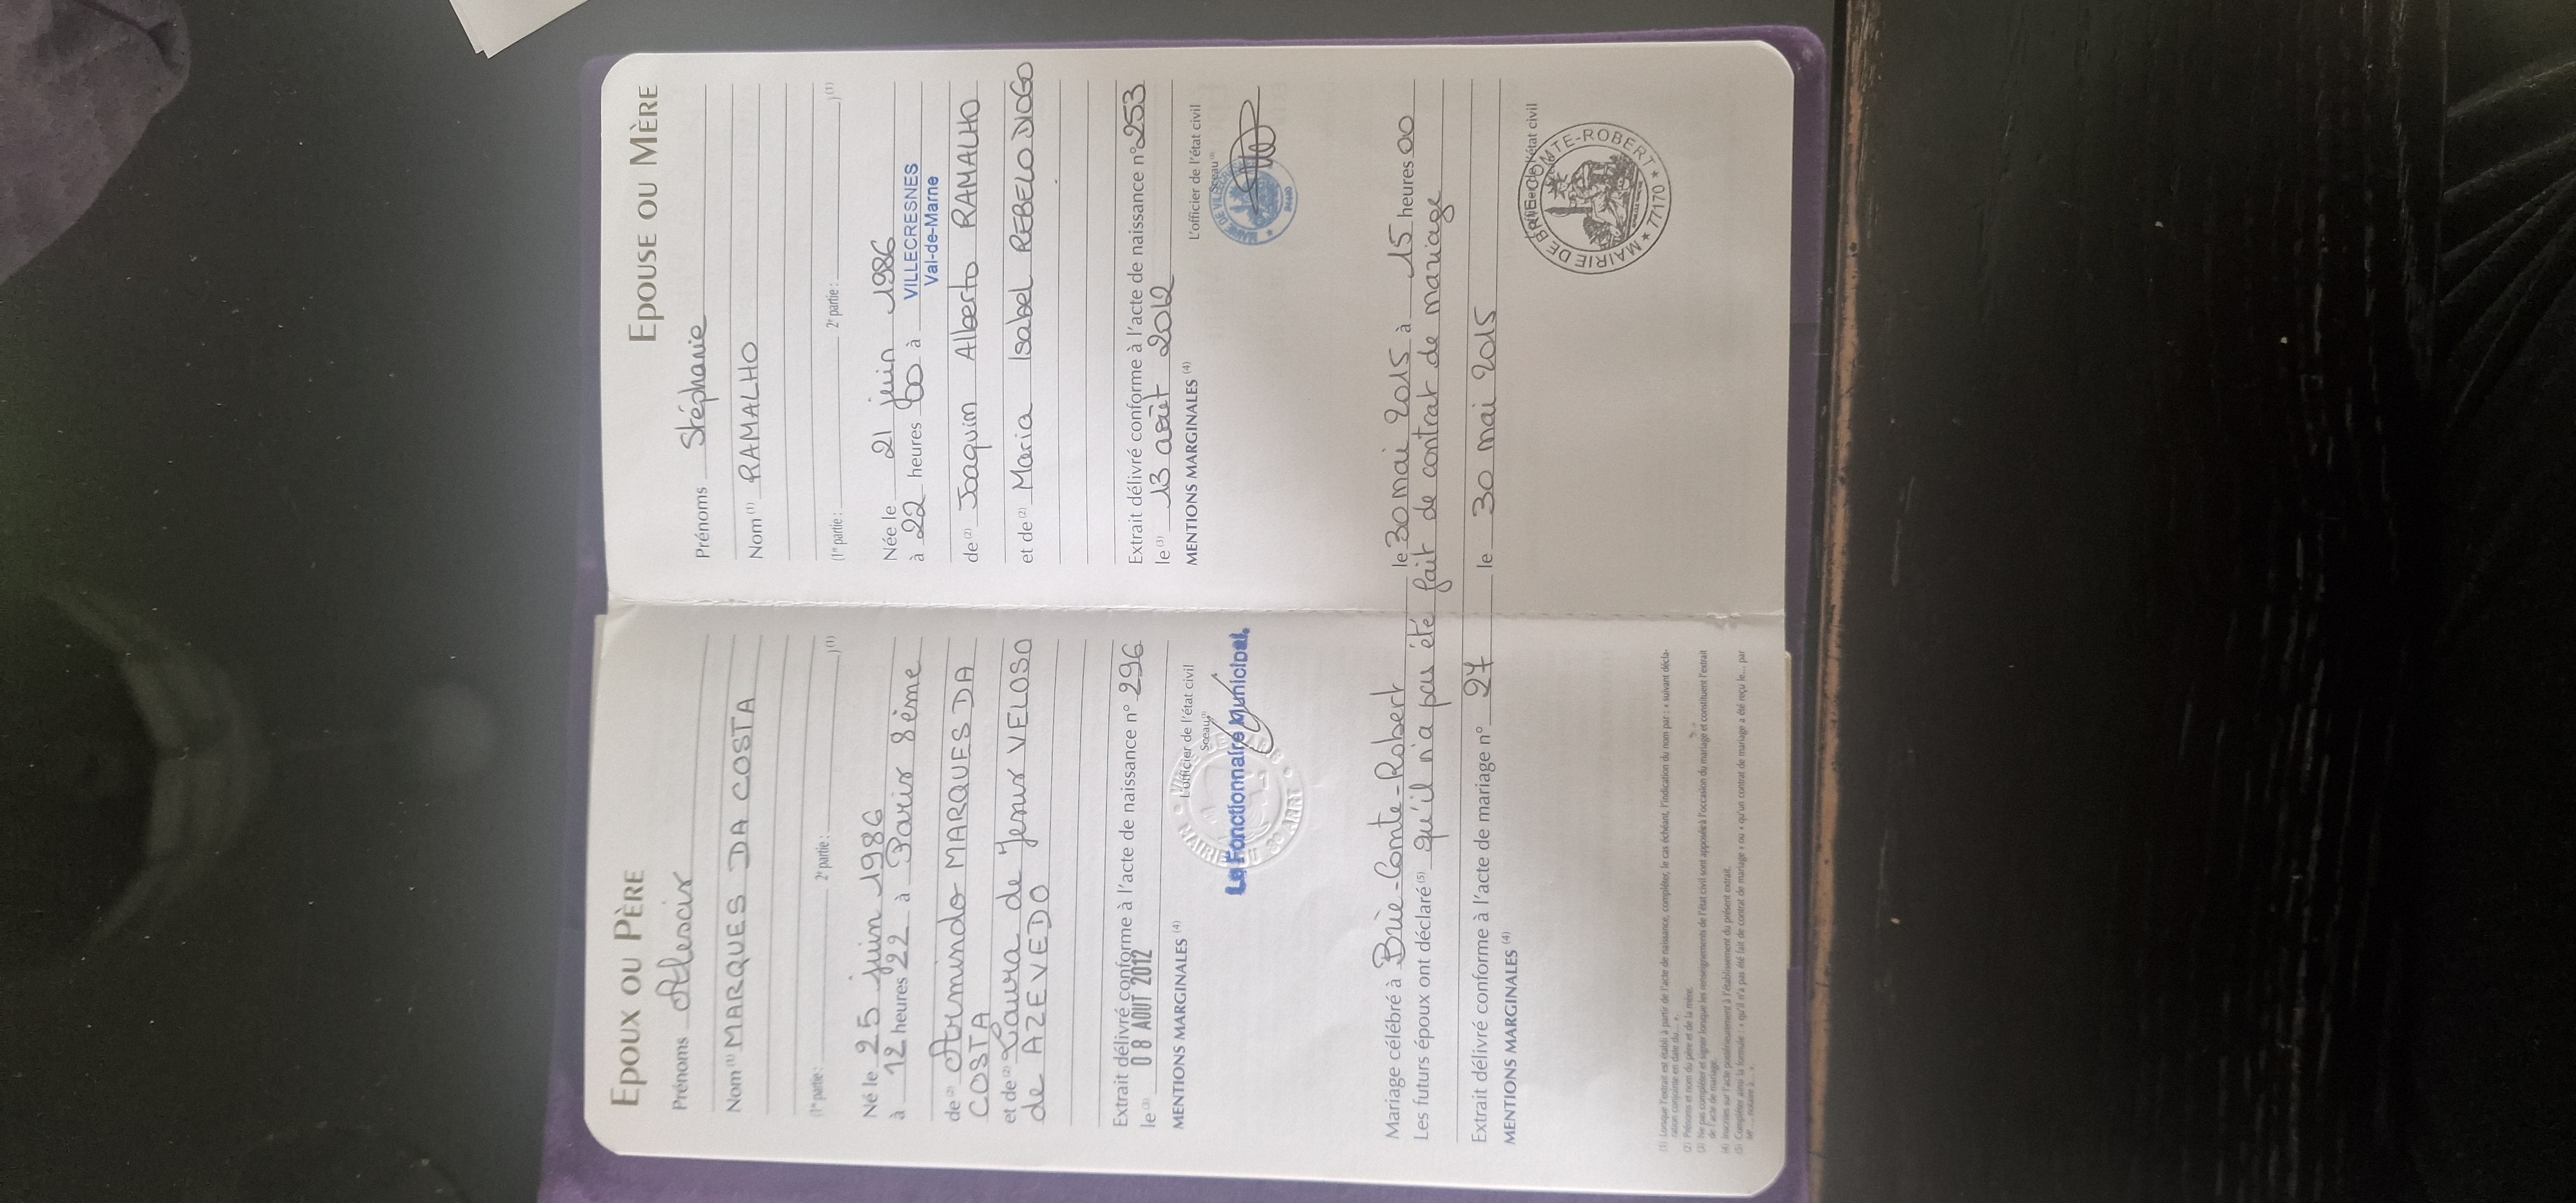 EPOUX OU PÈRE
Prénoms Alescix
Nom (1) MARQUES DA COSTA
(1re partie : 2e partie : ) (1)
Né le 25 juin 1986
à 12 heures 22 à Paris 8ème
de (2) Armindo MARQUES DA
COSTA
et de (2) Laura de Jesus VELOSO
de AZEVEDO
Extrait délivré conforme à l'acte de naissance n° 296
le (3) 08 AOUT 2012
L'officier de l'état civil
Sceau
MENTIONS MARGINALES (4)
Le Fonctionnaire Municipal.
EPOUSE OU MÈRE
Prénoms Stéphanie
Nom (1) RAMALHO
(1re partie : 2e partie : ) (1)
Née le 21 juin 1986
à 22 heures 50 à VILLECRESNES
Val-de-Marne
de (2) Joaquim Alberto RAMALHO
et de (2) Maria Isabel REBELO DIOGO
Extrait délivré conforme à l'acte de naissance n° 253
le (3) 13 août 2012
L'officier de l'état civil
Sceau
MENTIONS MARGINALES (4)
Mariage célébré à Brie-Comte-Robert le 30 mai 2015 à 15 heures 00
Les futurs époux ont déclaré (5) qu'il n'a pas été fait de contrat de mariage
Extrait délivré conforme à l'acte de mariage n° 27 le 30 mai 2015
MENTIONS MARGINALES (4)
L'officier de l'état civil
MAIRIE DE BRIE-COMTE-ROBERT * 77170 *
(1) Lorsque l'extrait est établi à partir de l'acte de naissance, compléter, le cas échéant, l'indication du nom par : « suivant décla-
ration conjointe en date du... ».
(2) Prénoms et nom du père et de la mère.
(3) Ne pas compléter et signer lorsque les renseignements de l'état civil sont apposés à l'occasion du mariage et constituent l'extrait
de l'acte de mariage.
(4) Inscrites sur l'acte postérieurement à l'établissement du présent extrait.
(5) Compléter ainsi la formule : « qu'il n'a pas été fait de contrat de mariage » ou « qu'un contrat de mariage a été reçu le... par
Me ... notaire à... ».